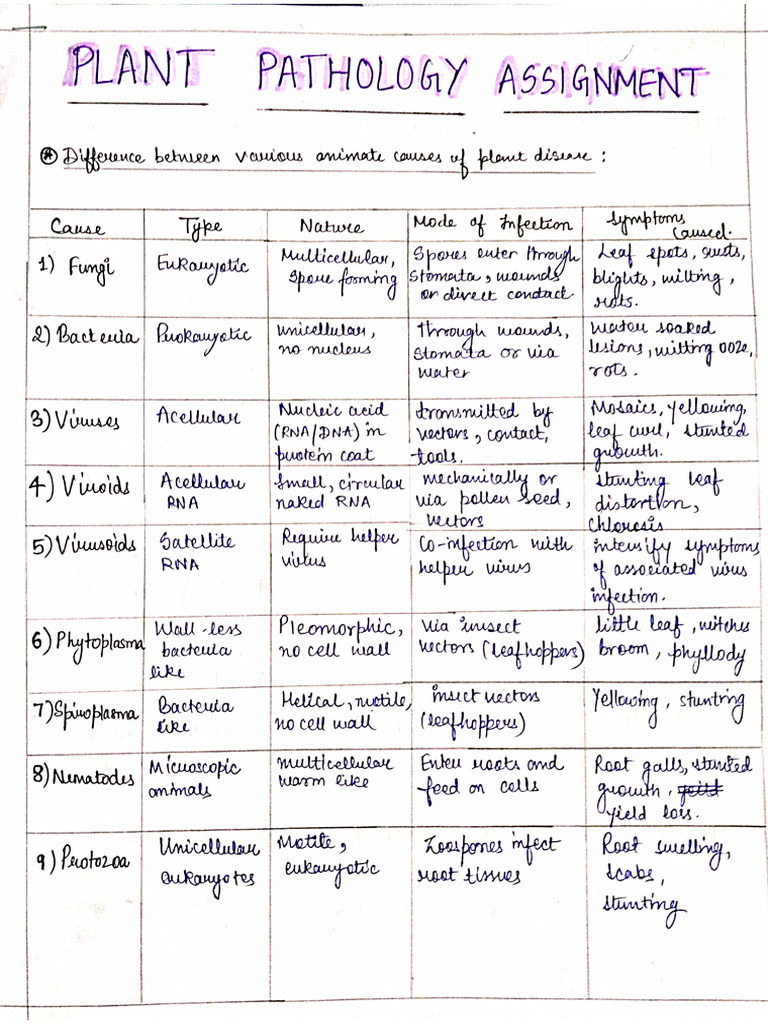 PLANT PATHOLOGY ASSIGNMENT
Difference between various animate causes of plant disease :
Cause Type Nature Mode of Infection Symptoms Caused.
1) Fungi Eukaryotic Multicellular, spore forming Spores enter through stomata, wounds or direct contact. Leaf spots, rusts, blights, wilting, rots.
2) Bacteria Prokaryotic unicellular, no nucleus through wounds, stomata or via water water soaked lesions, wilting ooze, rots.
3) Viruses Acellular Nucleic acid (RNA/DNA) in protein coat transmitted by vectors, contact, tools. Mosaics, yellowing, leaf curl, stunted growth.
4) Viroids Acellular RNA Small, circular naked RNA mechanically or via pollen seed, vectors stunting leaf distortion, chlorosis
5) Virusoids Satellite RNA Require helper virus Co-infection with helper virus intensify symptoms of associated virus infection.
6) Phytoplasma Wall-less bacteria like Pleomorphic, no cell wall via insect vectors (leafhoppers) little leaf, witches broom, phyllody
7) Spiroplasma Bacteria like Helical, motile, no cell wall insect vectors (leafhoppers) Yellowing, stunting
8) Nematodes Microscopic animals multicellular warm like Enter roots and feed on cells Root galls, stunted growth, yield loss.
9) Protozoa Unicellular eukaryotes Motile, eukaryotic Zoospores infect root tissues Root swelling, scabs, stunting